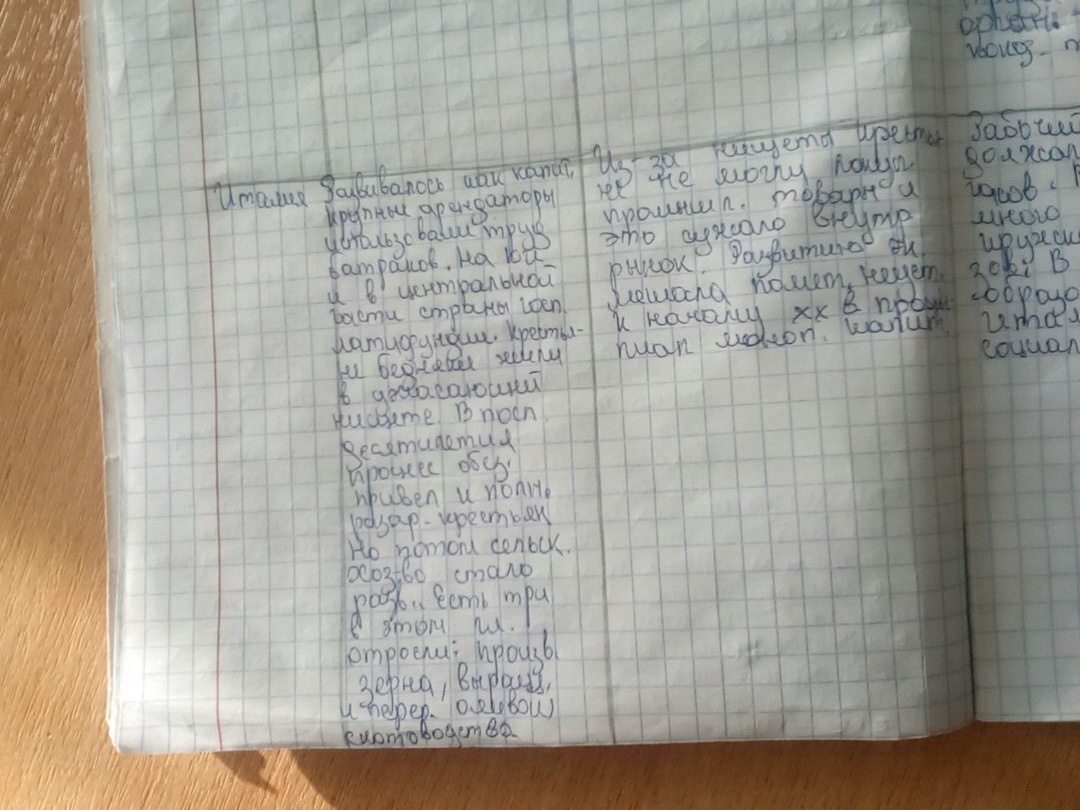 Италия
Развивалось как капит.
крупные арендаторы
использовали труд
батраков. На юге
и в центральной
части страны госп.
латифундии. Крестья-
не бедняки жили
в ужасающей
нищете. В посл.
десятилетия
процес обез.
привел к полн.
разар. крестьян
Но потом сельск.
хоз-во стало
разв.. Есть три
в этом гл.
отросли: произв
зерна, выращ,
и перер. оливой,
скотоводства
Из-за нищеты крестья
не не могли покуп.
промышл. товары и
это сужало внутр.
рынок. Развитию эк.
мешала помет. нищет.
к началу XX в пром.
этап моноп. капит.
органи.
Рабочий
должал
часов.
много
зов. В
образо
итал
социал